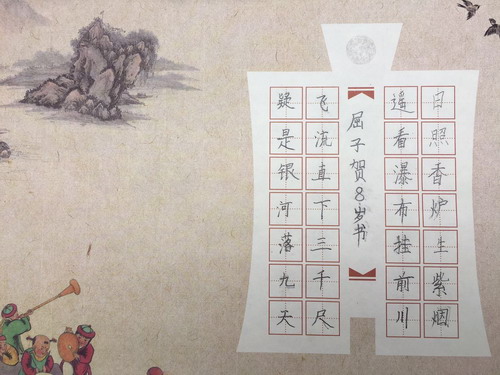 日照香炉生紫烟
遥看瀑布挂前川
屈子贺8岁书
飞流直下三千尺
疑是银河落九天